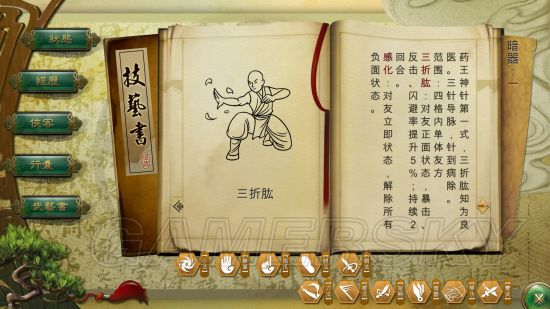 狀態
經歷
俠客
行囊
武藝書
技藝書
三折肱
暗器：
药王神针第一式，三折肱知为良
医。三针导脉，针到病除。
范围：四格内单体友方
三折肱：对友正面状态，暴击、
反击、闪避率提升5%；持续2
回合。
感化：对友立即状态，解除所有
负面状态。
GAMERSKY